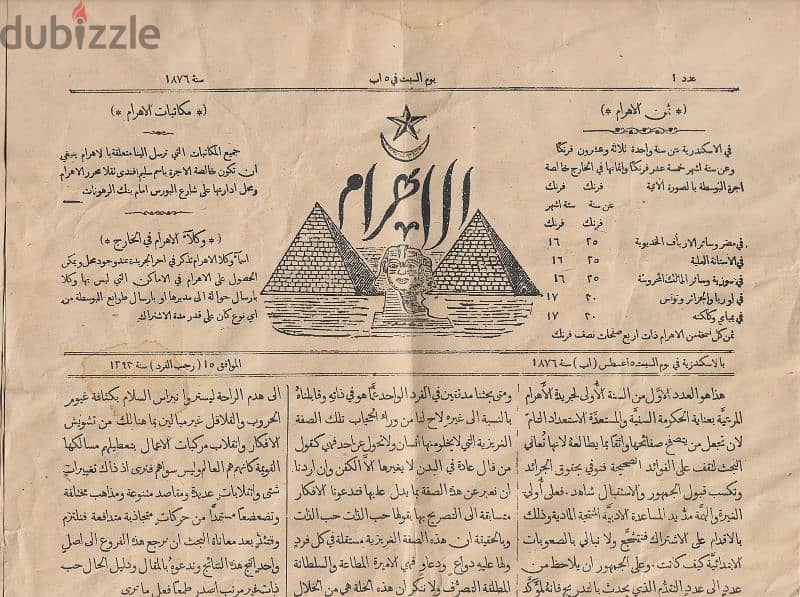 dubizzle
عدد ١
يوم السبت في ٥ اب
سنة ١٨٧٦
(* ثمن الاهرام *)
في الاسكندرية عن سنة واحدة ثلاثة وعشرون فرنكا
وعن ستة اشهر خمسة عشر فرنكا واثمانها في الخارج خالصة
اجرة البوسطة بالصورة الاتية فرنك فرنك
عن سنة ستة اشهر
فرنك فرنك
في مصر وسائر الارياف الخديوية ٢٥ ١٦
في الاستانة العلية ٢٥ ١٦
في سورية وسائر الممالك المحروسة ٢٥ ١٦
في اوربا والجزائر وتونس ٣٠ ١٧
في بمباي وكلكته ٣٠ ١٧
ثمن كل نسخة من الاهرام ذات اربع صفحات نصف فرنك
الاهرام
(* مكاتبات الاهرام *)
جميع المكاتبات التي ترسل الينا متعلقة بالاهرام ينبغي
ان تكون خالصة الاجرة باسم سليم افندي نقلا محرر الاهرام
ومحل ادارتها على شارع البورس امام بنك الرهونات
(* وكلآء الاهرام في الخارج *)
اسمآء وكلا الاهرام تذكر في اخر الجريدة عند وجود محل ويمكن
الحصول على الاهرام في الاماكن التي ليس بها وكلا
بارسال حوالة الى مديرها او بارسال طوابع البوسطة من
اي نوع كان على قدر مدة الاشتراك
بالاسكندرية في يوم السبت ٥ اغسطس (اب) سنة ١٨٧٦
الموافق ١٥ (رجب الفرد) سنة ١٢٩٣
هذا هو العدد الاول من السنة الأولى لجريدة الأهرام
المرعيّة بعناية الحكومة السنيّة والمستعدّة الاستعداد التامّ
لان تجعل من يتصفح صفائحها واثقا بما يطالعه لانها تُعاني
البحث لتقف على الفوائد الصحيحة فتوفي بحقوق الجرائد
وتكسب قبول الجمهور والاستقبال شاهد. فعلى أولي
الغيرة والهمة مدّ يد المساعدة الادبيّة المنتجة المادية وذلك
بالاقدام على الاشتراك فنتشجّع ولا نبالي بالصعوبات
الابتدائيّة كيف كانت. وعلى الجمهور ان يلاحظ من
عدد الى عدد التقدّم الذي يحدث بالتدريج فانه لمؤكّد
ومتى بحثنا مدققين في الفرد الواحد عمّا هو في ذاته وقابلناهُ
بالنسبة الى غيره لاح لنا من ورآء الحجاب تلك الصفة
الغريزية التي لا يخلو منها انسان ولا تحول عن احد فهي كقول
من قال عادة في البدن لا يغيرها الّا الكفن وان أردنا
ان نعبر عن هذه الصفة بما يدل عليها فتدعونا الافكار
متسابقة الى التصريح بها بقولها حب الذات حب الذات
وبالحقيقة ان هذه الصفة الغريزية مستقلة في كل فردٍ
ولها عليه دواعٍ ودعاوٍ فهي الاميرة المطاعة والسلطانة
المطلقة التصرّف ولا ننكر ان هذه الخلة هي من الخلال
الى هدم الراحة ليستروا نبراس السلام بكثافة غيوم
الحروب والقلاقل غير مبالين بما هنالك من تشويش
الافكار وانقلاب مركبات الاعمال بتعطيلهم مسالكها
القويمة كانهم هم العالم وليس سواهم فترى اذ ذاك تغييرات
شتى وانقلابات عديدة ومقاصد متنوعة ومذاهب مختلفة
وتضعضعاً مستمدًّا من حركات متجاذبة متدافعة فنلتزم
وقتئذٍ بعد معاناة البحث ان نرجع هذه الفروع الى اصل
واحد انتج هذه النتائج وندعوه بالمقال ودليل الحال حب
ذات غير مرتب اصدر طمعاً فعل ما ترى